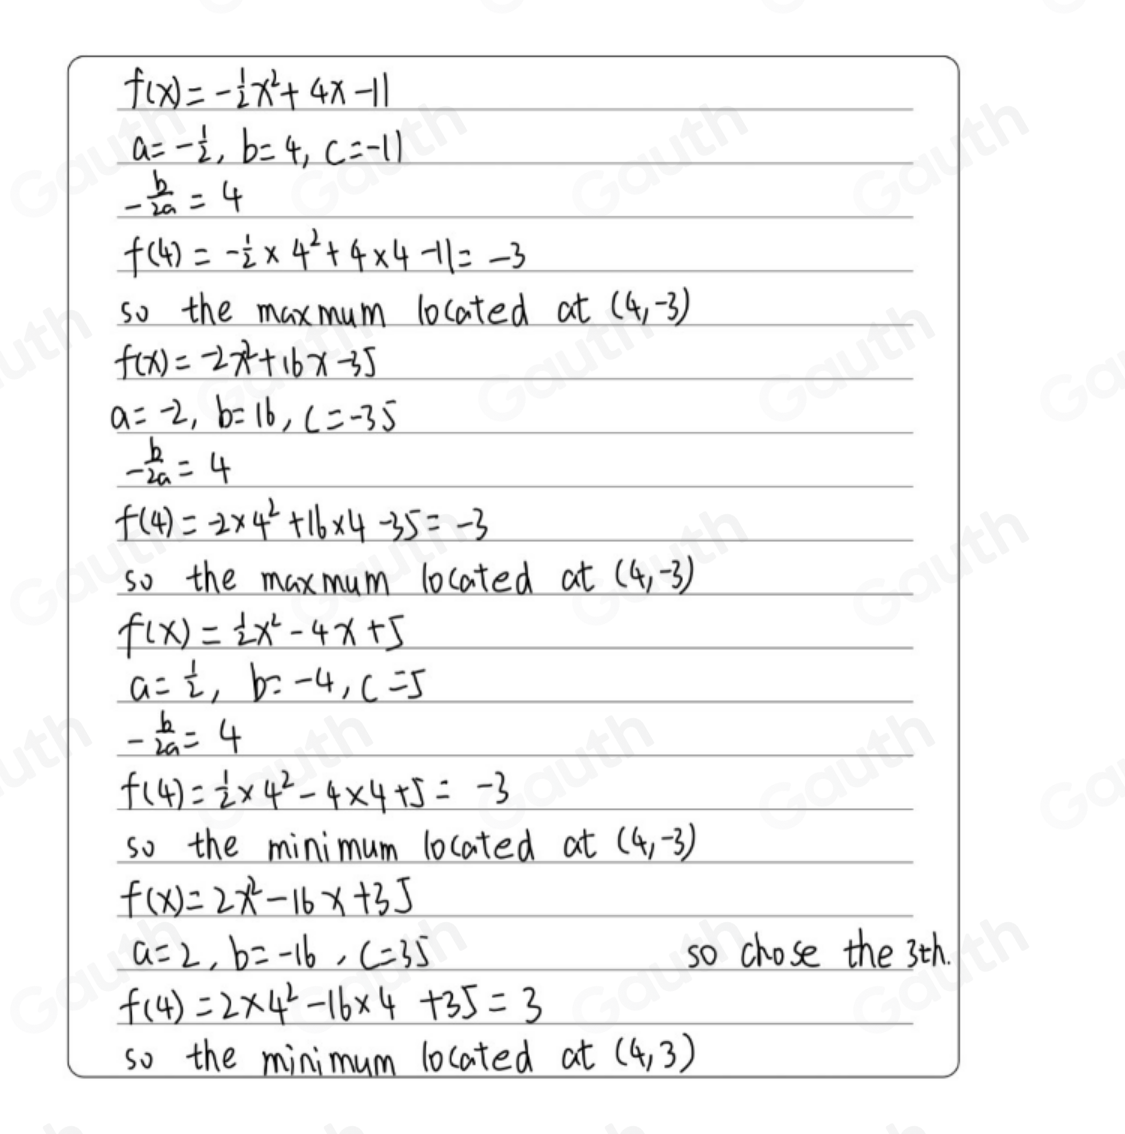 f(x) = -1/2x² + 4x -11
a = -1/2, b = 4, c = -11
-b/2a = 4
f(4) = -1/2 × 4² + 4 × 4 -11 = -3
so the maxmum located at (4,-3)
f(x) = -2x² + 16x -35
a = -2, b = 16, c = -35
-b/2a = 4
f(4) = -2 × 4² + 16 × 4 -35 = -3
so the maxmum located at (4,-3)
f(x) = 1/2x² - 4x + 5
a = 1/2, b = -4, c = 5
-b/2a = 4
f(4) = 1/2 × 4² - 4 × 4 + 5 = -3
so the minimum located at (4,-3)
f(x) = 2x² - 16x + 35
a = 2, b = -16, c = 35 so chose the 3th.
f(4) = 2 × 4² - 16 × 4 + 35 = 3
so the minimum located at (4,3)
Gauth